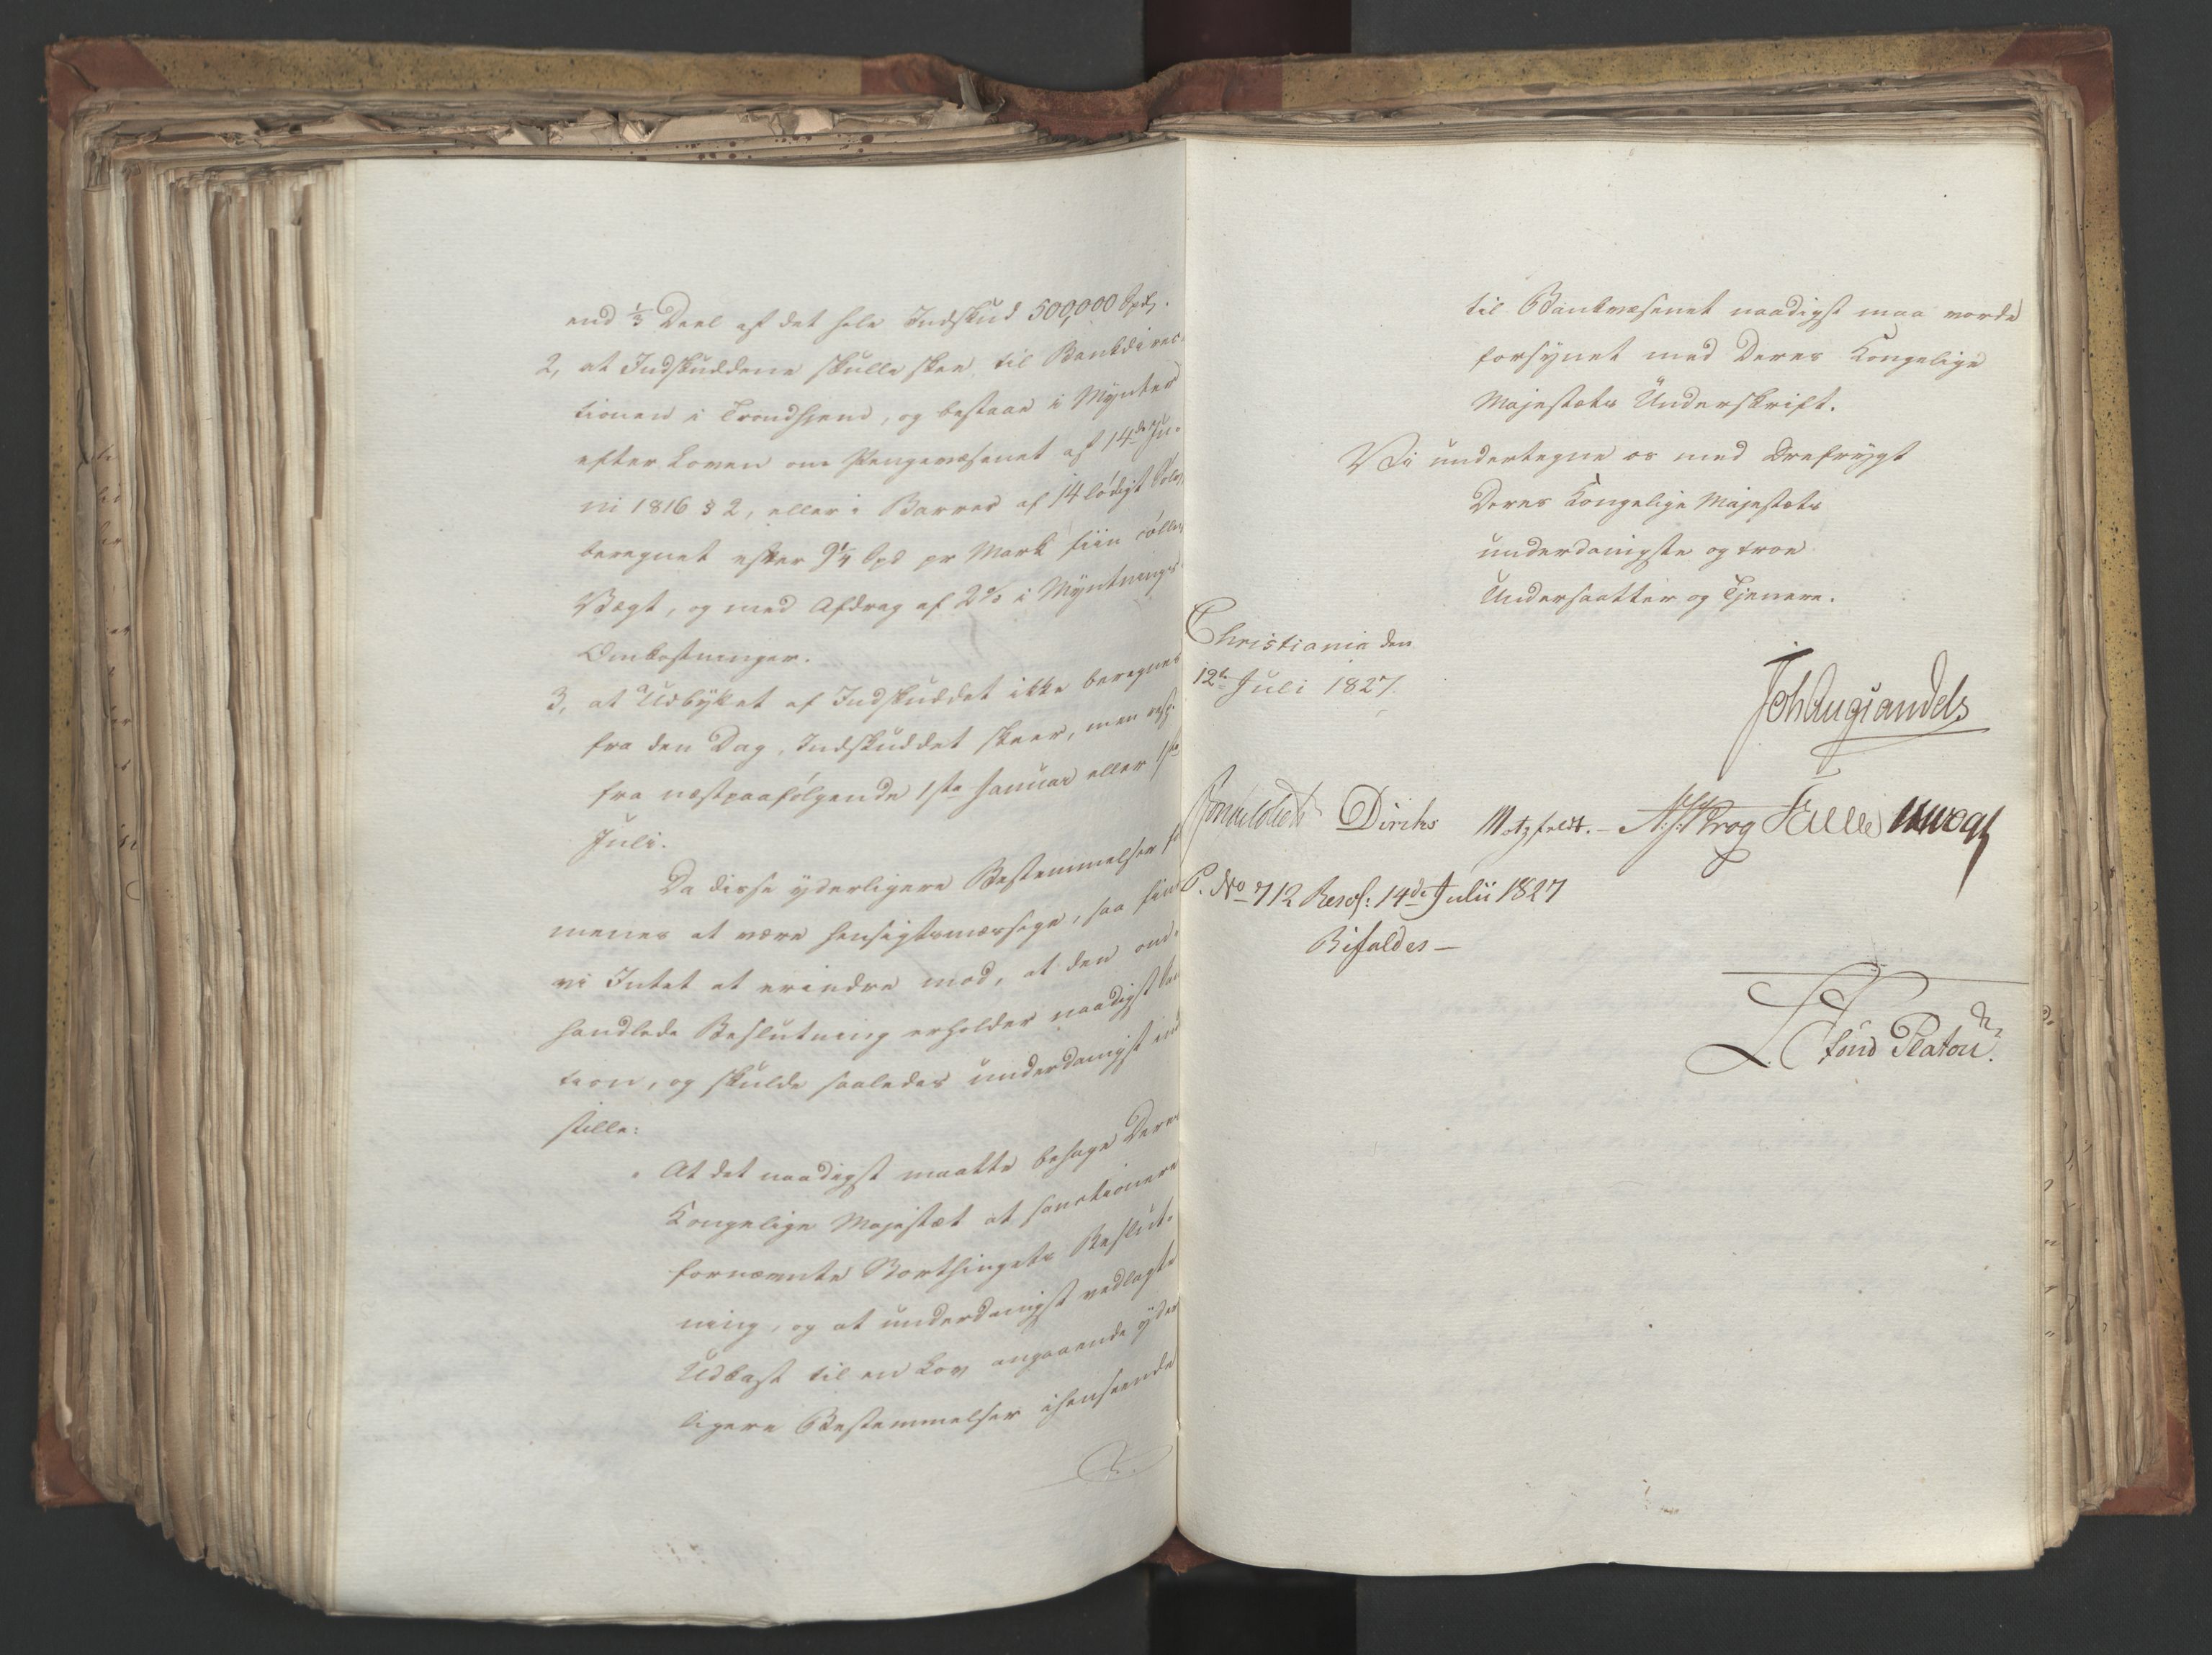 end 1/3 Deel af det hele Indskud 500,000 Spd,.
2, at Indskuddene skulle skee til Bankdirec-
tionen i Trondhjem, og bestaae i Mynter
efter Loven om Pengevæsenet af 14de Ju-
ni 1816 § 2, eller i Barrer af 14 lødigt Sølv,
beregnet efter 9 1/4 Spd pr Mark fiin cølln,
Vægt, og med Afdrag af 2 % i Myntnings-
Omkostninger.
3, at Udbyttet af Indskuddet ikke beregnes
fra den Dag, Indskuddet skeer, men
fra næstpaafølgende 1ste Januar eller 1ste
Juli.
Da disse yderligere Bestemmelser
menes at være hensigtsmæssige, saa
vi Intet at erindre mod, at den om-
handlede Beslutning erholder naadigst Sanc
tion, og skulde saaledes underdanigst ind
stille:
At det naadigst maatte behage Deres
Kongelige Majestæt at sanctionere
fornævnte Storthingets Beslut-
ning, og at underdanigst vedlagte
Udkast til en Lov angaaende yder
ligere Bestemmelser ihenseende
til Bankvæsenet naadigst maa vorde
forsynet med Deres Kongelige
Majestæts Underskrift.
Vi undertegne os med Ærefrygt
Deres Kongelige Majestæts
underdanigste og troe
Undersaatter og Tjenere.
Christiania den
12te Juli 1827.
Joh Aug Sandels
Jonas Collett Diriks Motzfeldt. - A: J: Krog Falle
P. No 712 Resol: 14de Julii 1827
Bifaldes -